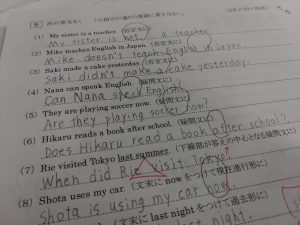 8 次の英文を( )の指示の通りの英語に変えなさい。
(1) My sister is a teacher. (否定文に)
My sister is not a teacher.
(2) Mike teaches English in Japan. (否定文に)
Mike doesn't teach English in Japan
(3) Saki made a cake yesterday. (否定文に)
Saki didn't make a cake yesterday.
(4) Nana can speak English. (疑問文に)
Can Nana speak English?
(5) They are playing soccer now. (疑問文に)
Are they playing soccer now?
(6) Hikaru reads a book after school. (疑問文に)
Does Hikaru read a book after school?
(7) Rie visited Tokyo last summer. (下線部が答えの中心となる疑問文に)
When did Rie visit Tokyo?
(8) Shota uses my car. (文末に now をつけて現在進行形に)
Shota is using my car now.
(文末に last night をつけて過去形に)
night.